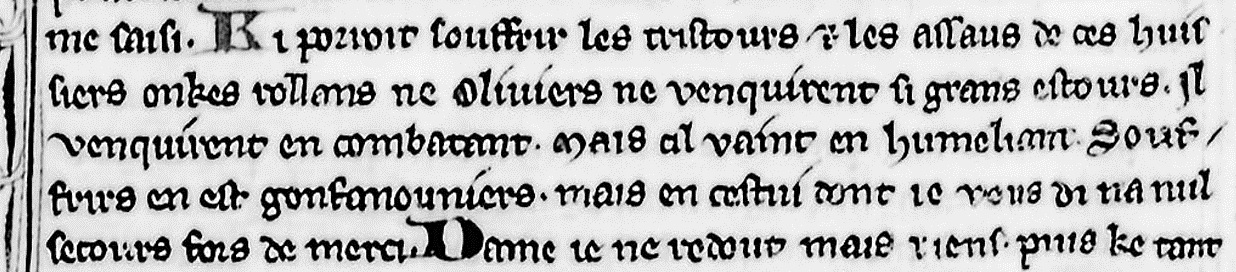 me saisi. Ki porroit souffrir les tristours ⁊ les assaus de ces huis
siers onkes rollans ne Oliuiers ne venquirent si grans estours. Il
venquirent en combatant. mais cil vaint en humeliant. Souf/
frirs en est gonfanouniers. mais en cestui dont ie vous di na nul
secours fors de merci. Dame ie ne redout mais riens. puis ke tant